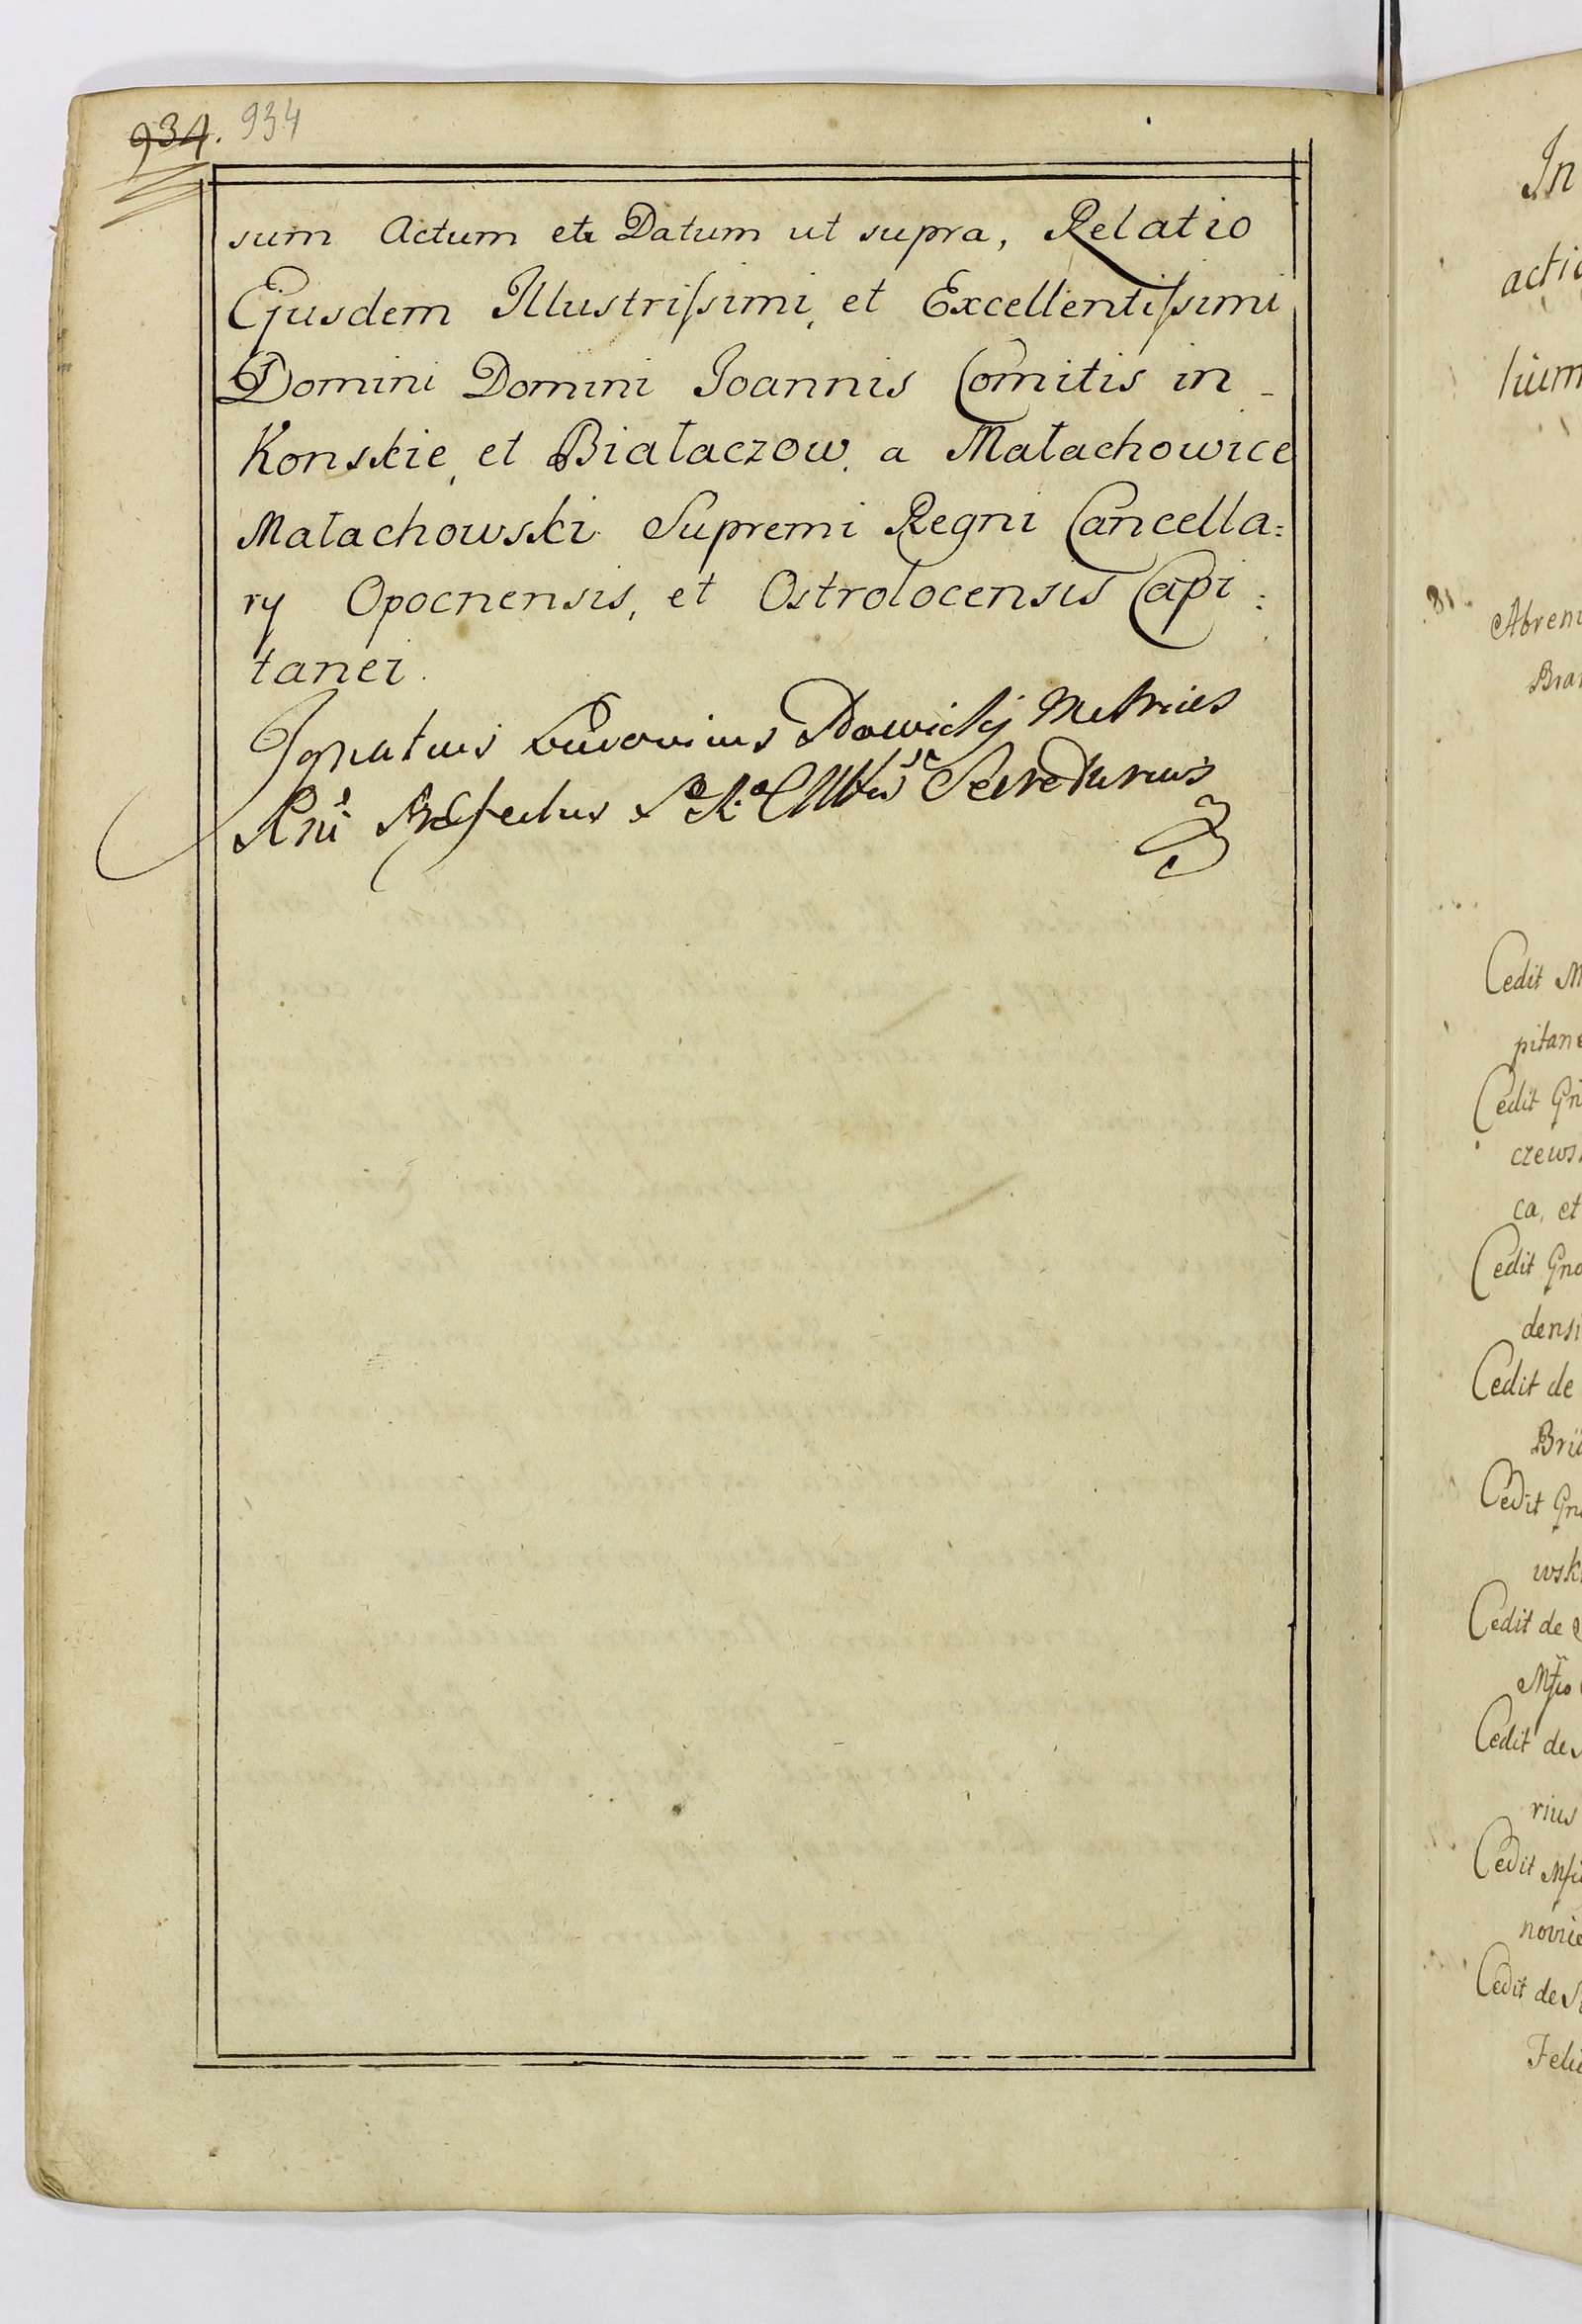 934. 934
sum Actum et Datum ut supra, Relatio
Ejusdem Illustrissimi, et Excellentissimi
Domini Domini Joannis Comitis in -
Konskie, et Białaczow, a Małachowice
Małachowski Supremi Regni Cancella:
ry Opocnensis, et Ostrolocensis Capi:
tanei.
Ignatius Metrices
Rni Præfectus S. R. Secretarius
In
actio
lium
Abrenu
Bra
Cedit M
pitane
Cedit Gn
czews
ca, et
Cedit Gno
densi
Cedit de
Brü
Cedit Gn
wsk
Cedit de
Mfio
Cedit de
rius
Cedit Mfi
novie
Cedit de S
Feli